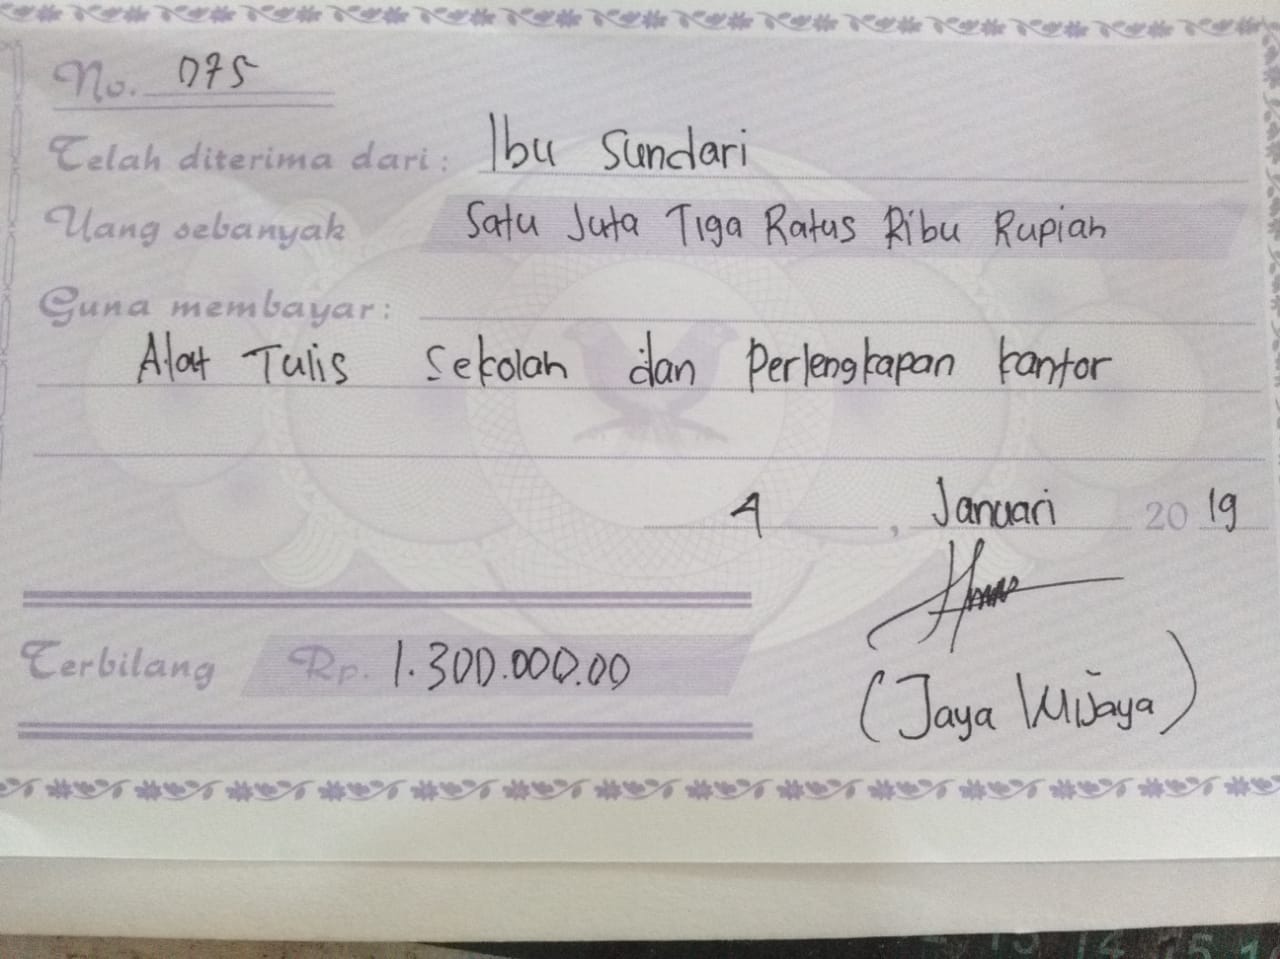 No. 075
Telah diterima dari: Ibu Sundari
Uang sebanyak Satu Juta Tiga Ratus Ribu Rupiah
Guna membayar:
Alat Tulis Sekolah dan Perlengkapan kantor
4, Januari 2019
Terbilang Rp. 1.300.000.00
(Jaya Wijaya)